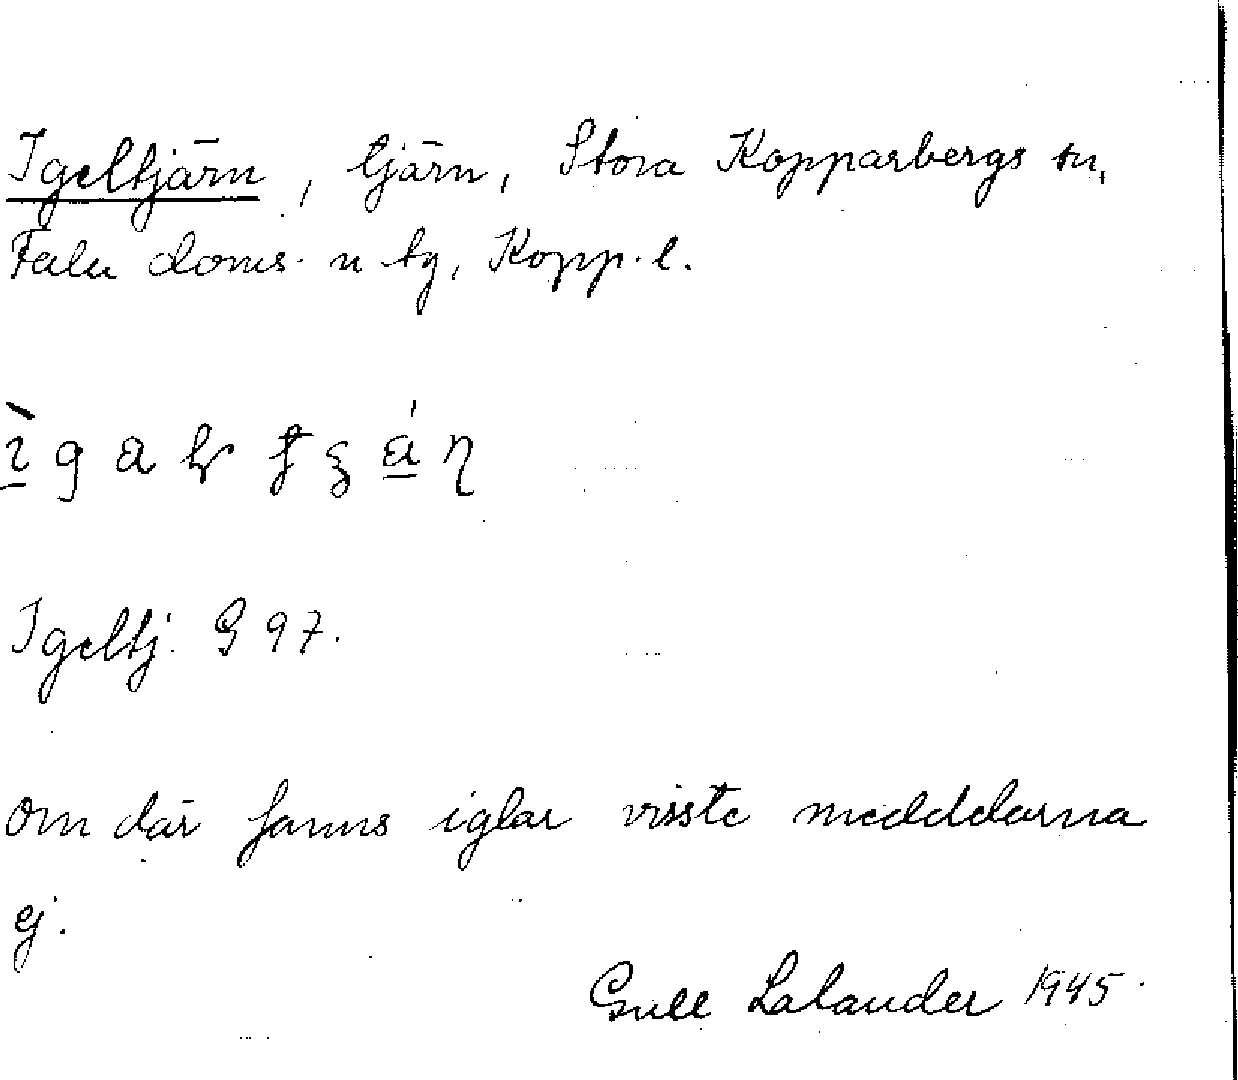 Igeltjärn, tjärn, Stora Kopparbergs sn,
Falu doms. o tg, Kopp. l.
Igeltj. G 97.
Om där fanns iglar visste meddelarna
ej.
Gull Lalander 1945.